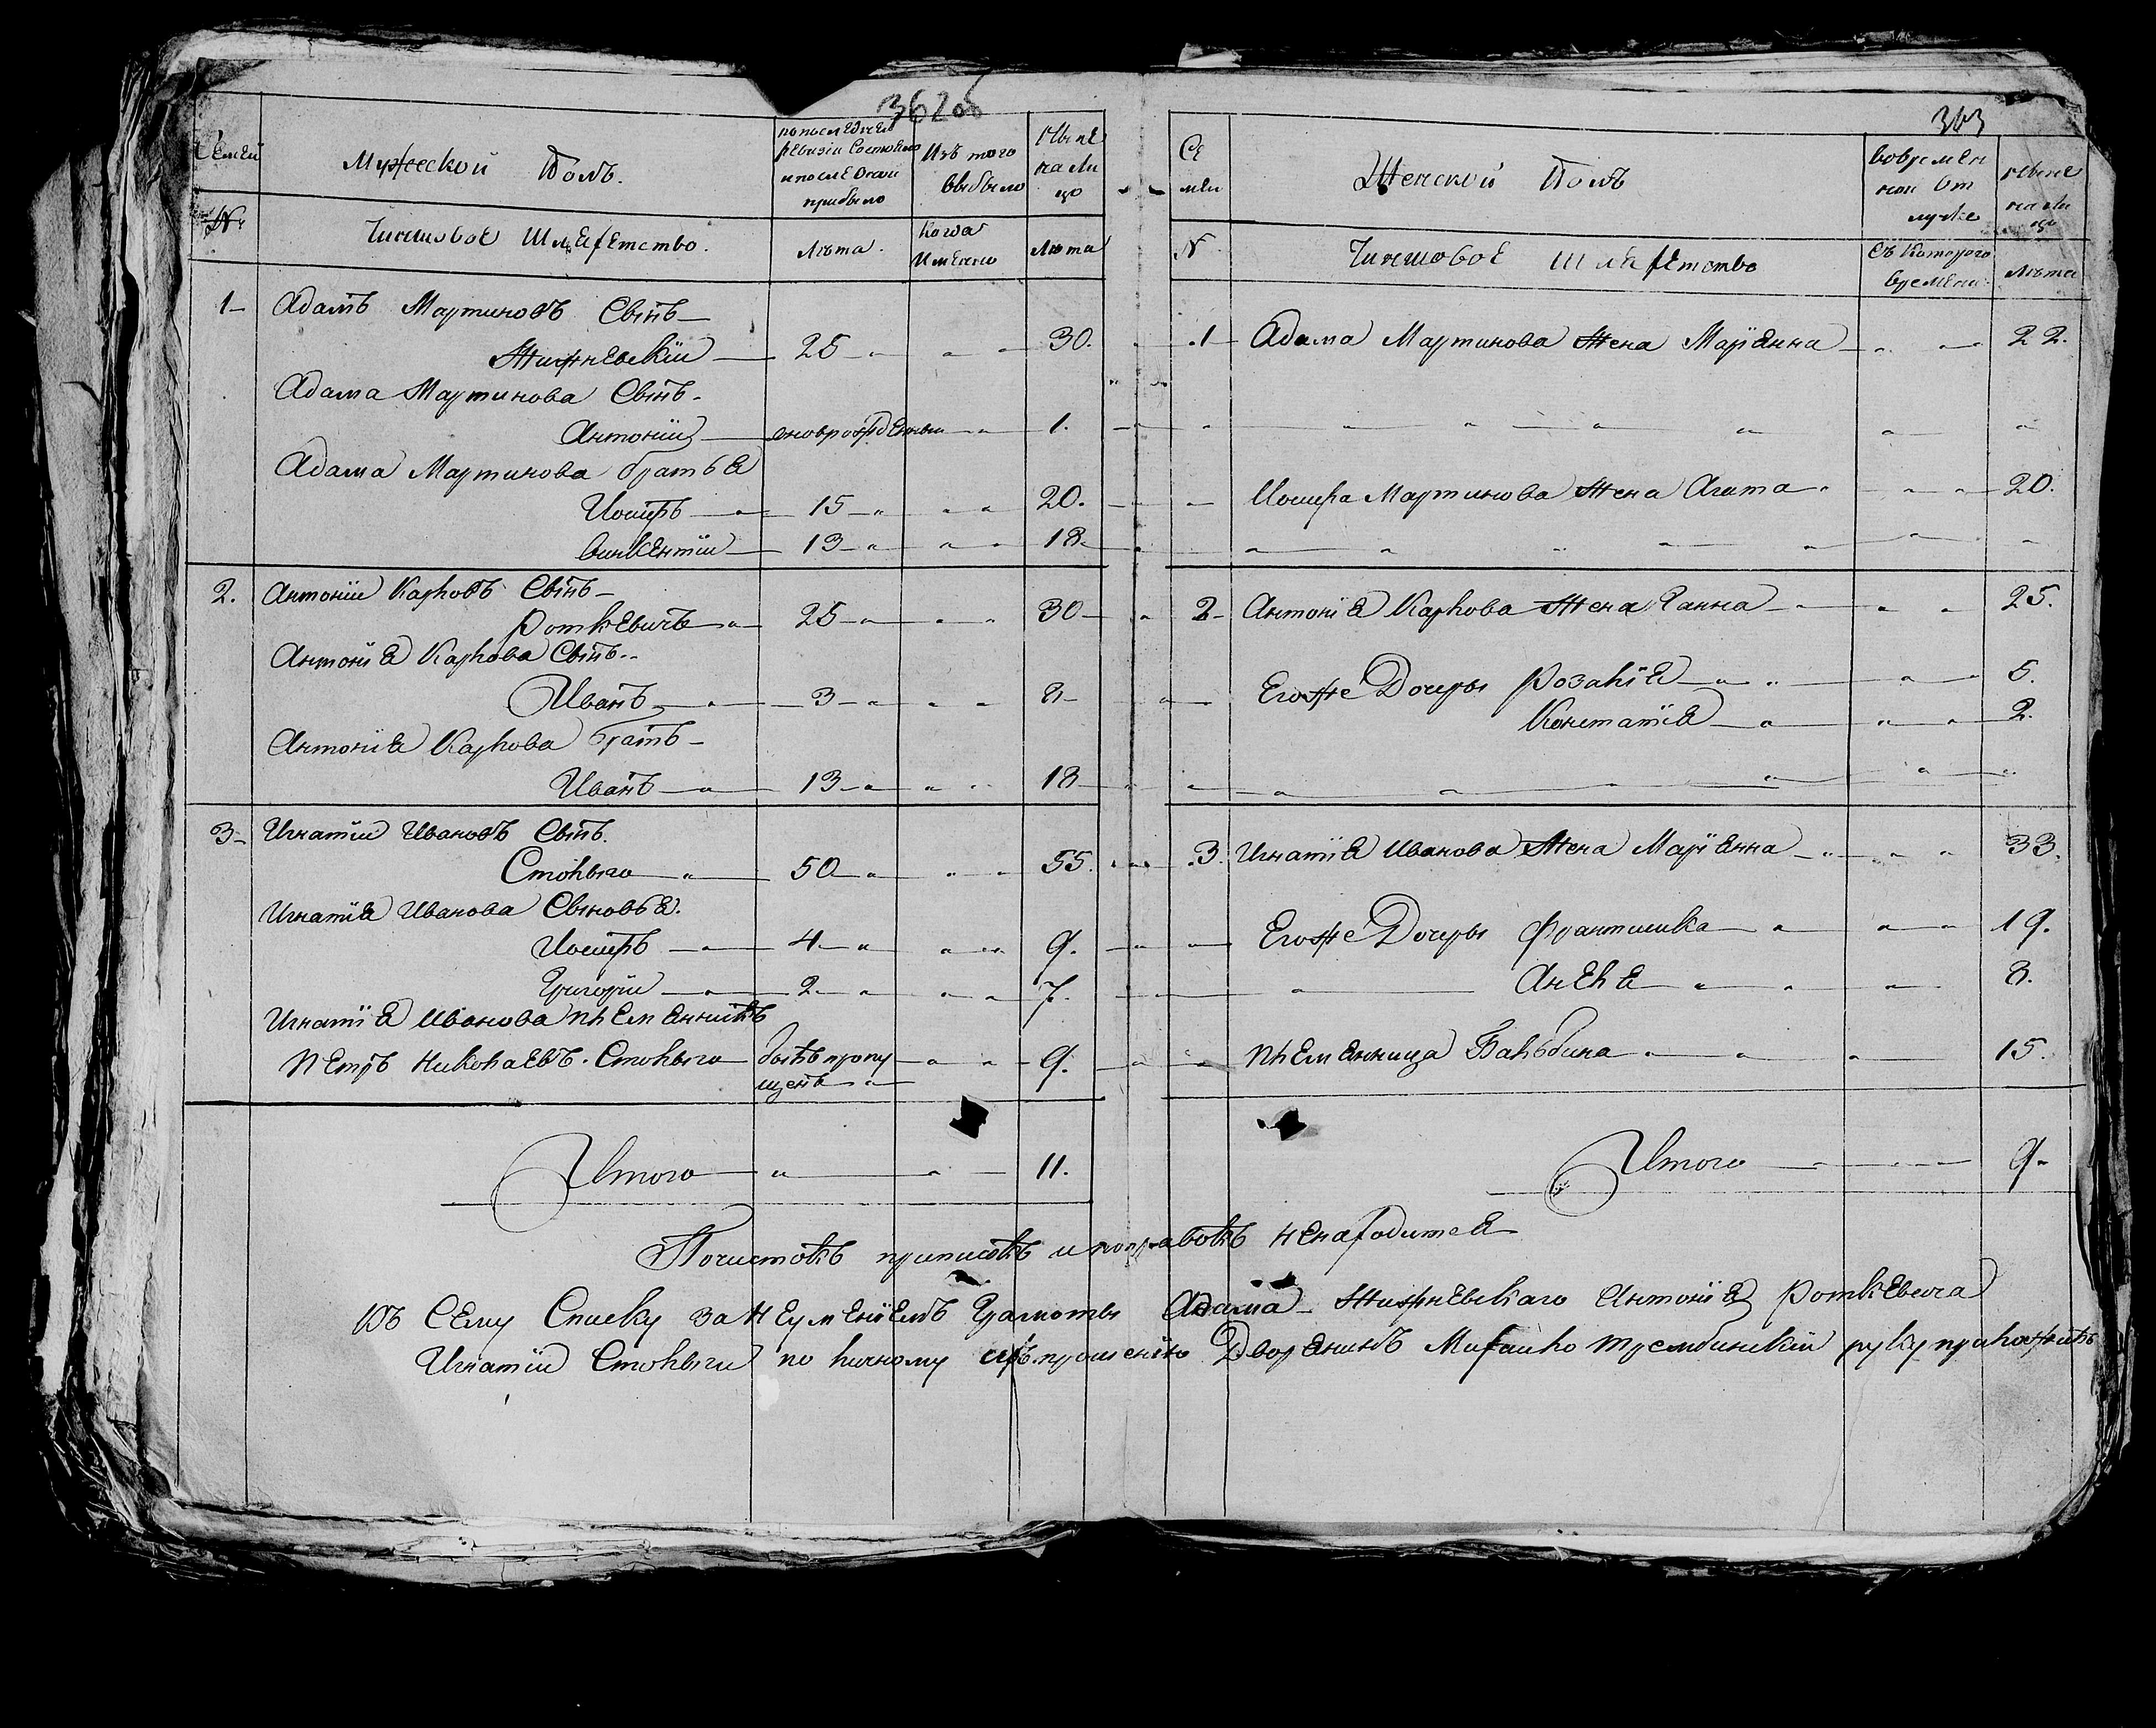 362об
363
Семей
Мужеской Полъ.
по последней
ревизiи состояло
и после оной
прибыло
Изъ того
выбыло
Ныне
на ли
цо
№
Чиншовое Шляхетство.
Лѣта.
Когда
Именно
Лѣта
1 Адамъ Мартиновъ Сынъ
Жижневскiй 25 30.
Адама Мартинова Сынъ
Антонiй новорожденный 1.
Адама Мартинова братья
Иосифъ 15 20.
Викентiй 13 18
2. Антонiй Карловъ Сынъ
Роткевичъ 25 30
Антонiя Карлова Сынъ
Иванъ 3 8
Антонiя Карлова братъ
Иванъ 13 18
3 Игнатiй Ивановъ Сынъ.
Столыго 50 55.
Игнатiя Иванова Сыновья.
Иосифъ 4 9.
Григорiй 2 7.
Игнатiя Иванова племянникъ
Петръ Николаевъ Столыго былъ пропу 9.
щенъ
Итого 11.
Се
мей
Женской Полъ
Вовремен
ной от
лучке
Ныне
на ли
цо
№
Чиншовое Шляхетство
Съ Которого
времени
Лѣта
1 Адама Мартинова Жена Марiянна 22.
Иосифа Мартинова Жена Агата 20.
2 Антонiя Карлова Жена Ганна 25.
Егоже Дочеры Розалiя 5.
Констатiя 2.
3. Игнатiя Иванова Жена Марiянна 33.
Егоже Дочеры Франтишка 19.
Анеля 8.
племянница Бальбина 15.
Итого 9
Почистокъ приписокъ и поправокъ ненаходится
Къ Сему Списку за Неуменiемъ Грамоты Адама Жижневскаго Антонiя Роткевича
Игнатiй Столыги по личному ихъ прошенiю Дворянинъ Михайло Трембинскiй руку приложилъ